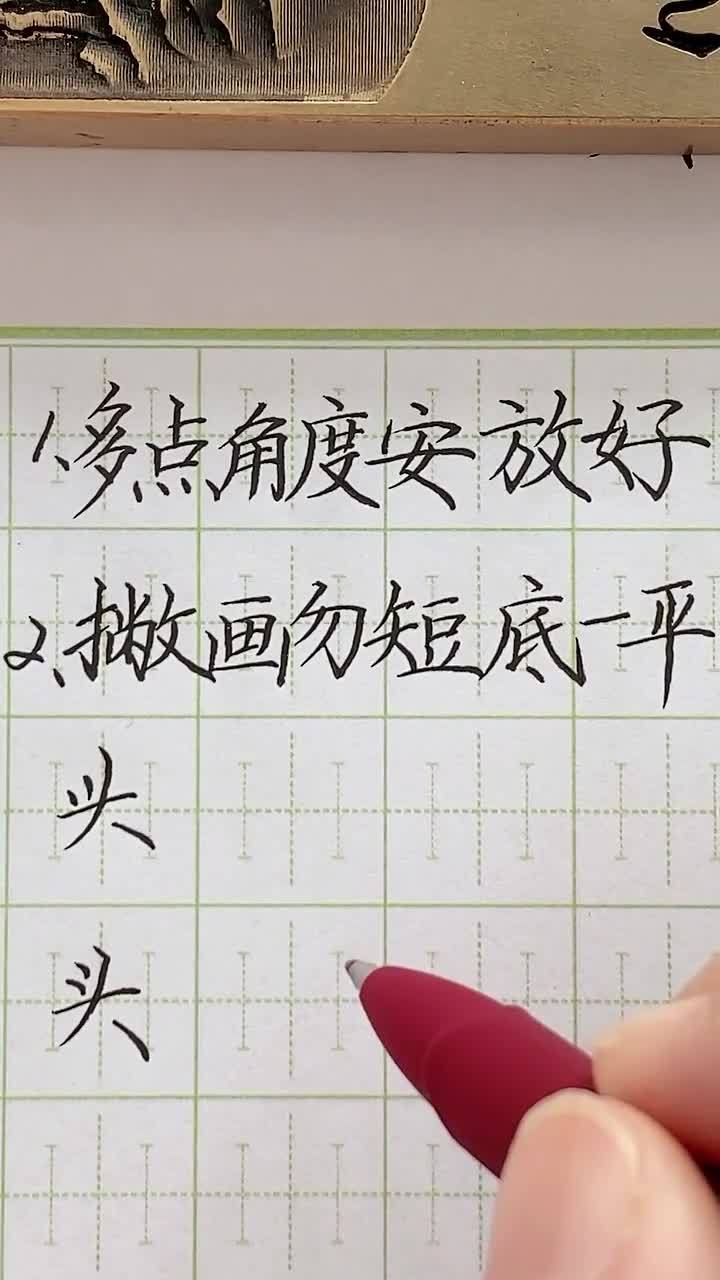 1、多点角度安放好
2、撇画勿短底一平
头
头